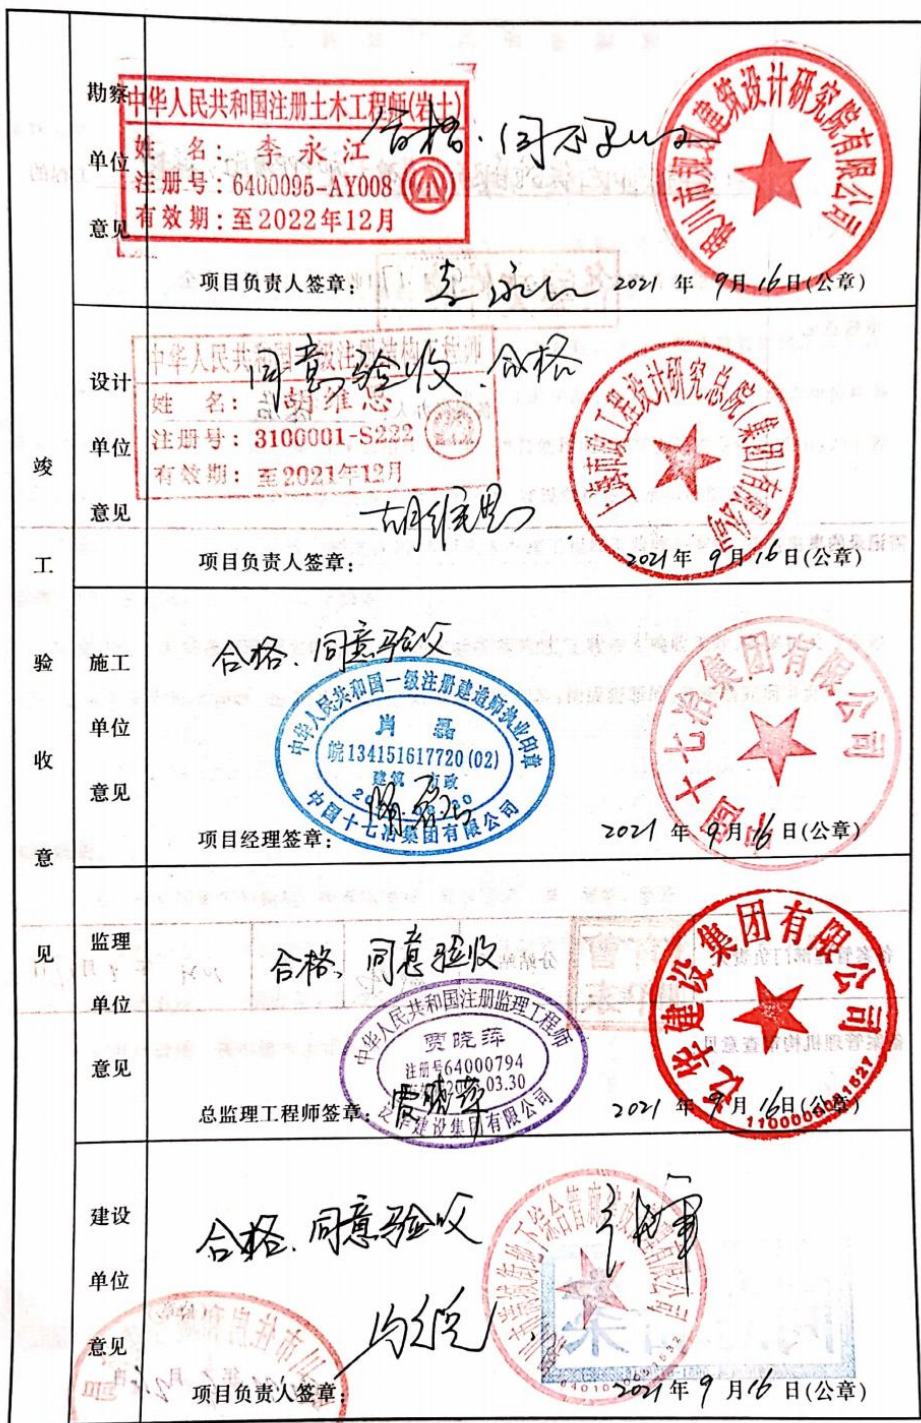 竣工验收意见
勘察单位意见
中华人民共和国注册土木工程师(岩土)
姓 名: 李永江
注册号: 6400095-AY008
有效期: 至2022年12月
合格、同意验收
银川市规划建筑设计研究院有限公司
项目负责人签章: 李永江 2021年9月16日(公章)
设计单位意见
中华人民共和国一级注册结构工程师
姓 名: 胡维思
注册号: 3100001-S222
有效期: 至2021年12月
同意验收、合格
上海市政工程设计研究总院(集团)有限公司
胡维思
项目负责人签章: 2021年9月16日(公章)
施工单位意见
合格、同意验收
中华人民共和国一级注册建造师执业印章
肖磊
皖134151617720(02)
建筑 市政
中国十七冶集团有限公司
中国十七冶集团有限公司
项目经理签章: 肖磊 2021年9月16日(公章)
监理单位意见
合格、同意验收
中华人民共和国注册监理工程师
贾晓萍
注册号64000794
03.30
达华建设集团有限公司
达华建设集团有限公司
1100000081527
总监理工程师签章: 贾晓萍 2021年9月16日(公章)
建设单位意见
合格、同意验收
地下综合管廊建设管理有限公司
项目负责人签章: 2021年9月16日(公章)